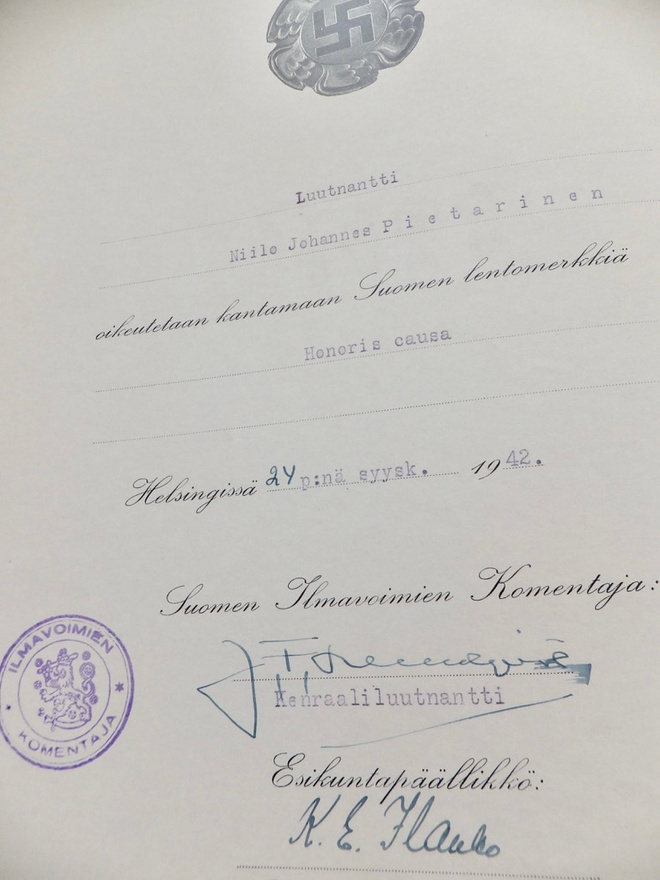 Luutnantti
Niilo Johannes Pietarinen
oikeutetaan kantamaan Suomen lentomerkkiä
Honoris causa
Helsingissä 24 p:nä syysk. 1942.
Suomen Ilmavoimien Komentaja:
Kenraaliluutnantti
ILMAVOIMIEN
KOMENTAJA
Esikuntapäällikkö:
K. E. Ilanko